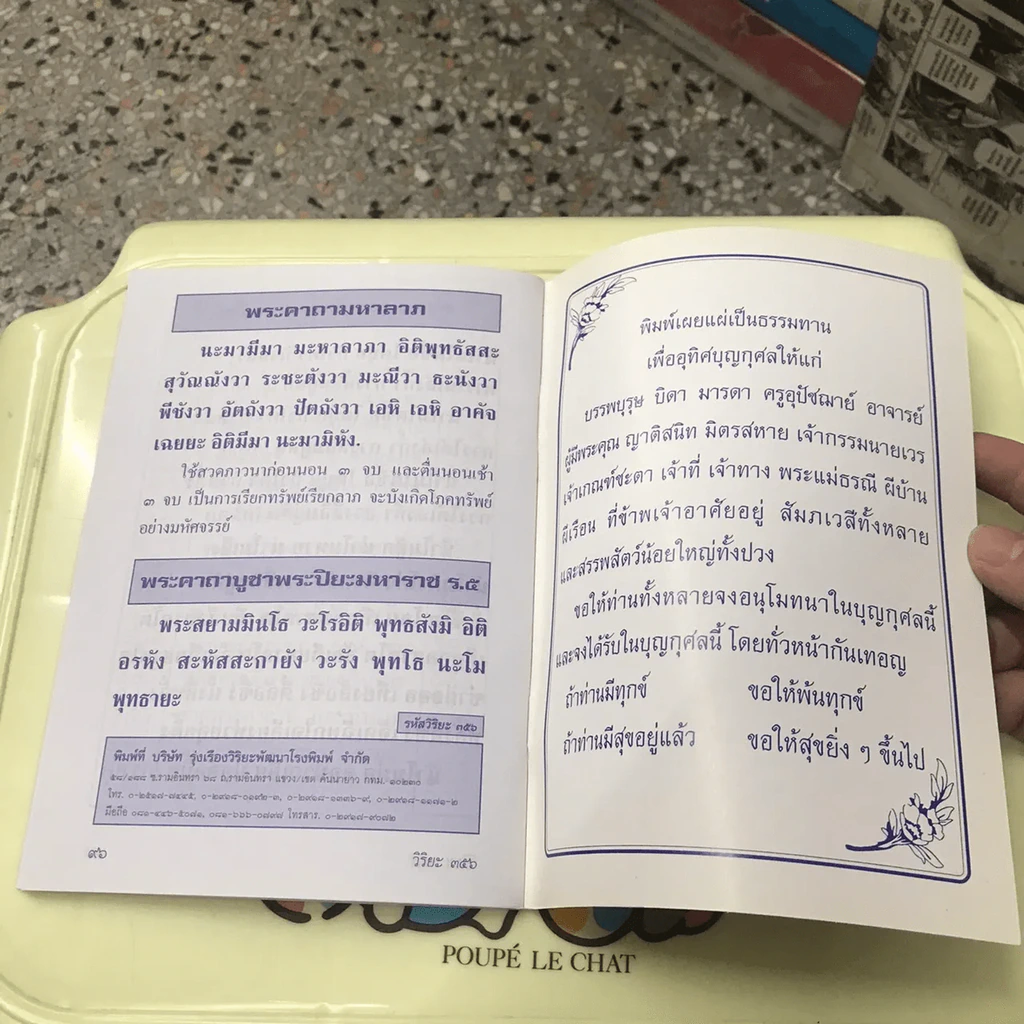 พระคาถามหาลาภ
นะมามีมา มะหาลาภา อิติพุทธัสสะ
สุวัณณังวา ระชะตังวา มะณีวา ธะนังวา
พีชังวา อัตถังวา ปัตถังวา เอหิ เอหิ อาคัจ
เฉยยะ อิติมีมา นะมามิหัง.
ใช้สวดภาวนาก่อนนอน ๓ จบ และตื่นนอนเช้า
๓ จบ เป็นการเรียกทรัพย์เรียกลาภ จะบังเกิดโภคทรัพย์
อย่างมหัศจรรย์
พระคาถาบูชาพระปิยะมหาราช ร.๕
พระสยามมินโธ วะโรอิติ พุทธสังมิ อิติ
อรหัง สะหัสสะกายัง วะรัง พุทโธ นะโม
พุทธายะ
รหัสวิริยะ ๓๕๖
พิมพ์ที่ บริษัท รุ่งเรืองวิริยะพัฒนาโรงพิมพ์ จำกัด
๕๘/๑๘๘ ซ.รามอินทรา ๖๘ ถ.รามอินทรา แขวง/เขต คันนายาว กทม. ๑๐๒๓๐
โทร. ๐-๒๕๑๘-๗๔๔๕, ๐-๒๙๑๘-๐๑๙๒-๓, ๐-๒๙๑๘-๑๓๓๖-๙, ๐-๒๙๑๘-๑๑๘๑-๒
มือถือ ๐๘๑-๔๔๖-๕๐๗๑, ๐๘๑-๖๖๖-๐๘๙๗ โทรสาร. ๐-๒๙๑๘-๙๐๗๒
๙๖
วิริยะ ๓๕๖
พิมพ์เผยแผ่เป็นธรรมทาน
เพื่ออุทิศบุญกุศลให้แก่
บรรพบุรุษ บิดา มารดา ครูอุปัชฌาย์ อาจารย์
ผู้มีพระคุณ ญาติสนิท มิตรสหาย เจ้ากรรมนายเวร
เจ้าเกณฑ์ชะตา เจ้าที่ เจ้าทาง พระแม่ธรณี ผีบ้าน
ผีเรือน ที่ข้าพเจ้าอาศัยอยู่ สัมภเวสีทั้งหลาย
และสรรพสัตว์น้อยใหญ่ทั้งปวง
ขอให้ท่านทั้งหลายจงอนุโมทนาในบุญกุศลนี้
และจงได้รับในบุญกุศลนี้ โดยทั่วหน้ากันเทอญ
ถ้าท่านมีทุกข์ ขอให้พ้นทุกข์
ถ้าท่านมีสุขอยู่แล้ว ขอให้สุขยิ่ง ๆ ขึ้นไป
POUPÉ LE CHAT